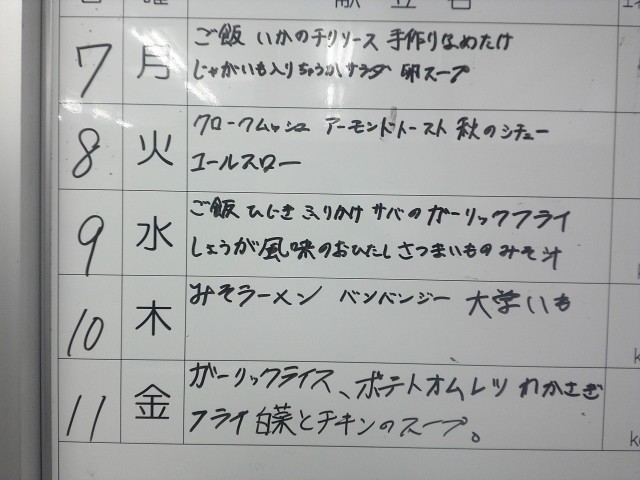 献立名
7 月 ご飯 いかのチリソース 手作りなめたけ
じゃがいも入りちゅうかサラダ 卵スープ
8 火 クロークムッシュ アーモンドトースト 秋のシチュー
コールスロー
9 水 ご飯 ひじきふりかけ サバのガーリックフライ
しょうが風味のおひたし さつまいものみそ汁
10 木 みそラーメン バンバンジー 大学いも
11 金 ガーリックライス、ポテトオムレツ わかさぎ
フライ 白菜とチキンのスープ。